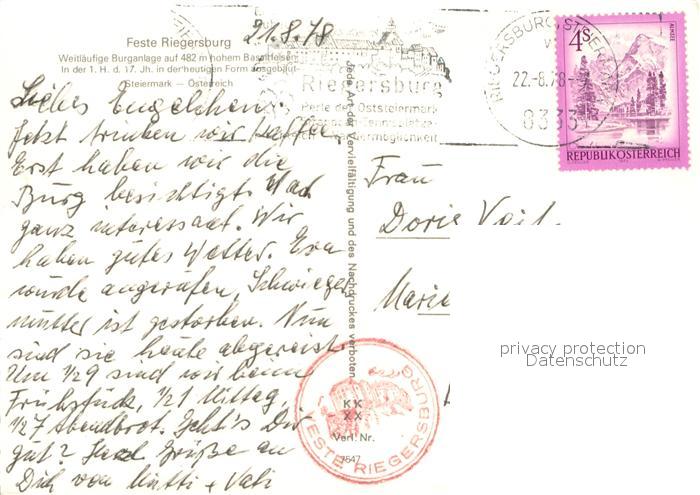 Feste Riegersburg
Weitläufige Burganlage auf 482 m hohem Basaltfelsen.
In der 1. H. d. 17. Jh. in der heutigen Form ausgebaut
Steiermark - Österreich
21.8.78
Liebes Engelchen!
Jetzt trinken wir Kaffee.
Erst haben wir die
Burg besichtigt. War
ganz interessant. Wir
haben gutes Wetter. Eva
wurde angerufen, Schwieger
mutter ist gestorben. Nun
sind sie heute abgereist.
Um ½9 sind wir beim
Frühstück, ½1 Mittag,
½7 Abendbrot. Geht's Dir
gut? Grüße an
Dich von Mutti + Vati
Riegersburg
Perle der Oststeiermark
RIEGERSBURG
22.-8.78
8333
4S
ALMSEE
REPUBLIK ÖSTERREICH
Frau
Doris
Marie
Jede Art der Vervielfältigung und des Nachdruckes verboten
VESTE RIEGERSBURG
KK
XX
Verl. Nr.
7547
privacy protection
Datenschutz